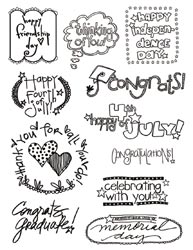 happy
friendship
day
thinking
of you
happy
indepen-
dence
Day
Happy
Fourth
of
July!
Congrats!
4th
happy of
JULY!
Congratulations!
celebrating
with you!
Congrats
Graduate!
memorial
day